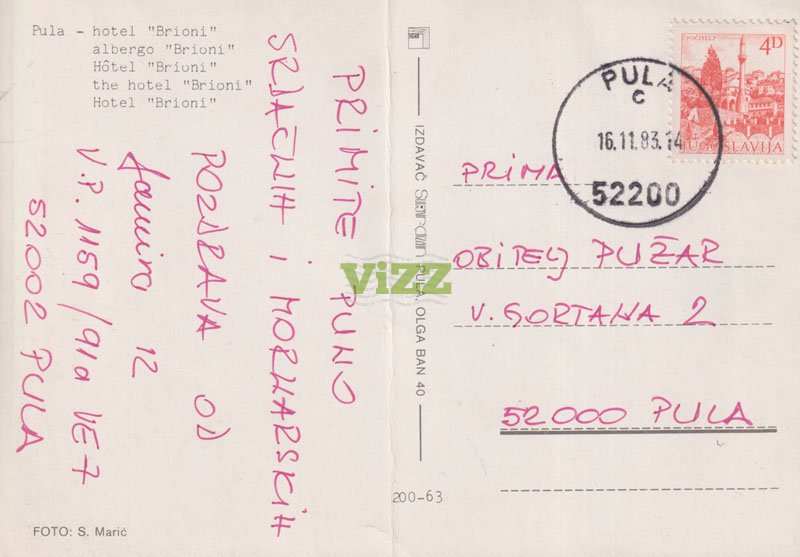 Pula - hotel "Brioni"
albergo "Brioni"
Hôtel "Brioni"
the hotel "Brioni"
Hotel "Brioni"
PRIMITE PUNO
SRDAČNIH I MORNARSKIH
POZDRAVA OD
12
V.P. 1159/91a VE7
52002 PULA
FOTO: S. Marić
IZDAVAČ PULA, OLGA BAN 40
200-63
POČITELJ
4D
JUGOSLAVIJA
PULA
C
16.11.83.14
52200
PRIMA
OBITELJ PUŽAR
V. GORTANA 2
52000 PULA
ViZZ